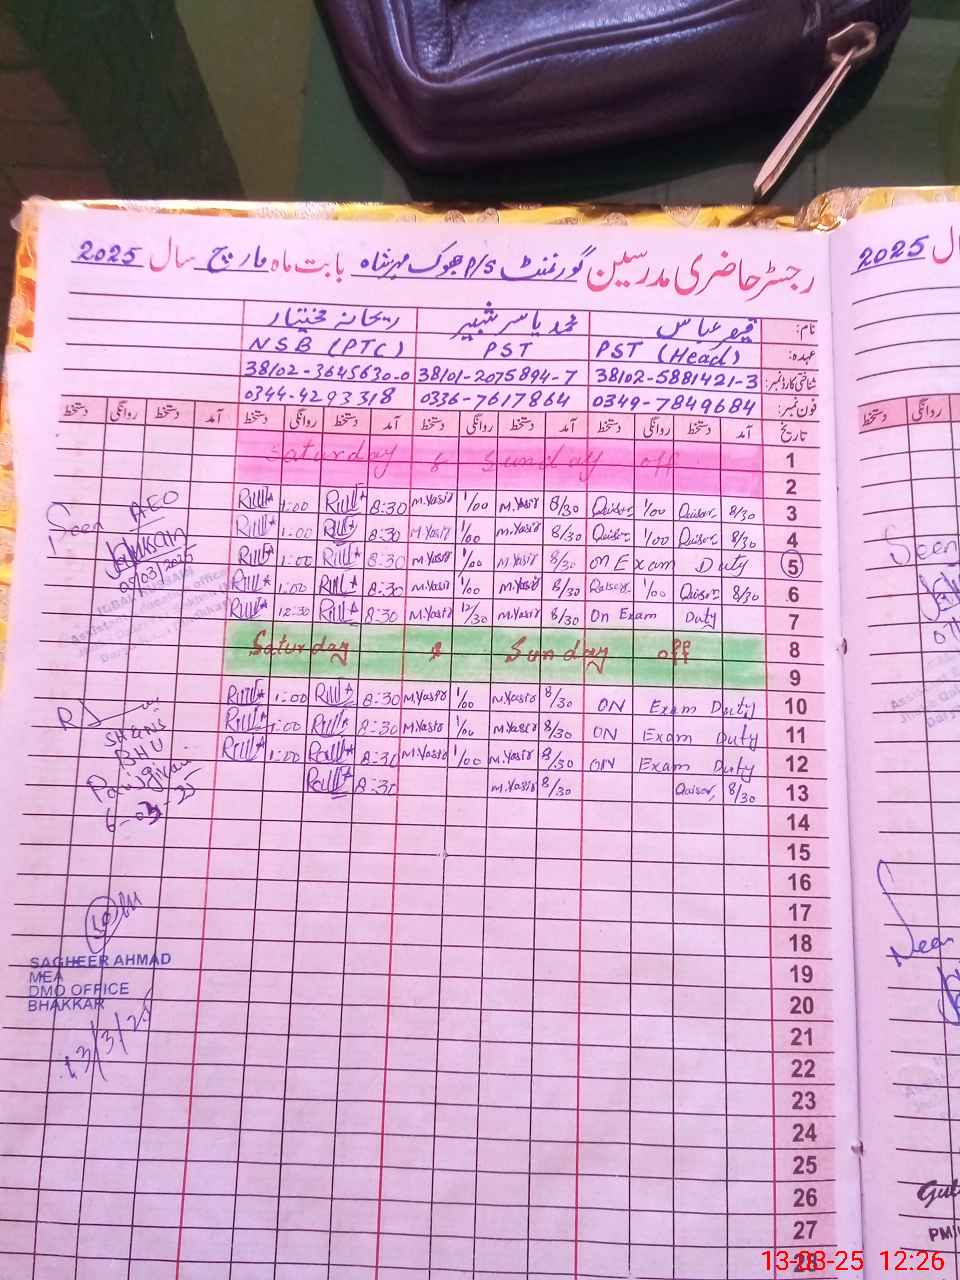 رجسٹر حاضری مدرسین گورنمنٹ P/S جھوک مہر شاہ بابت ماہ مارچ سال 2025
نام: قیصر عباس محمد یاسر شبیر ریحانہ مختیار
عہدہ: PST (Head) PST NSB (PTC)
شناختی کارڈ نمبر: 38102-5881421-3 38101-2075894-7 38102-3645630-0
فون نمبر: 0349-7849684 0336-7617864 0344-4293318
تاریخ آمد دستخط روانگی دستخط آمد دستخط روانگی دستخط آمد دستخط روانگی دستخط آمد دستخط روانگی دستخط
1 Saturday & Sunday off
2
3 8/30 Qaisar 1/00 Qaisar 8/30 M.Yasir 1/00 M.Yasir 8:30 1:00
4 8/30 Qaisar 1/00 Qaisar 8/30 M.Yasir 1/00 M.Yasir 8:30 1:00
5 on Exam Duty 8/30 M.Yasir 1/00 M.Yasir 8:30 1:00
6 8/30 Qaisar 1/00 Qaisar 8/30 M.Yasir 1/00 M.Yasir 8:30 1:00
7 On Exam Duty 8/30 M.Yasir 12/30 M.Yasir 8:30 12:30
8 Saturday & Sunday off
9
10 ON Exam Duty 8/30 M.Yasir 1/00 M.Yasir 8:30 1:00
11 ON Exam Duty 8/30 M.Yasir 1/00 M.Yasir 8:30 1:00
12 ON Exam Duty 8/30 M.Yasir 1/00 M.Yasir 8:30 1:00
13 8/30 Qaisar 8/30 M.Yasir 8:30
14
15
16
17
18
19
20
21
22
23
24
25
26
27
28
Seen
AEO
SH&NS
BHU
6-03-25
SAGHEER AHMAD
MEA
DMO OFFICE
BHAKKAR
13/3/25
2025
روانگی دستخط
Seen
Seen
13-03-25 12:26